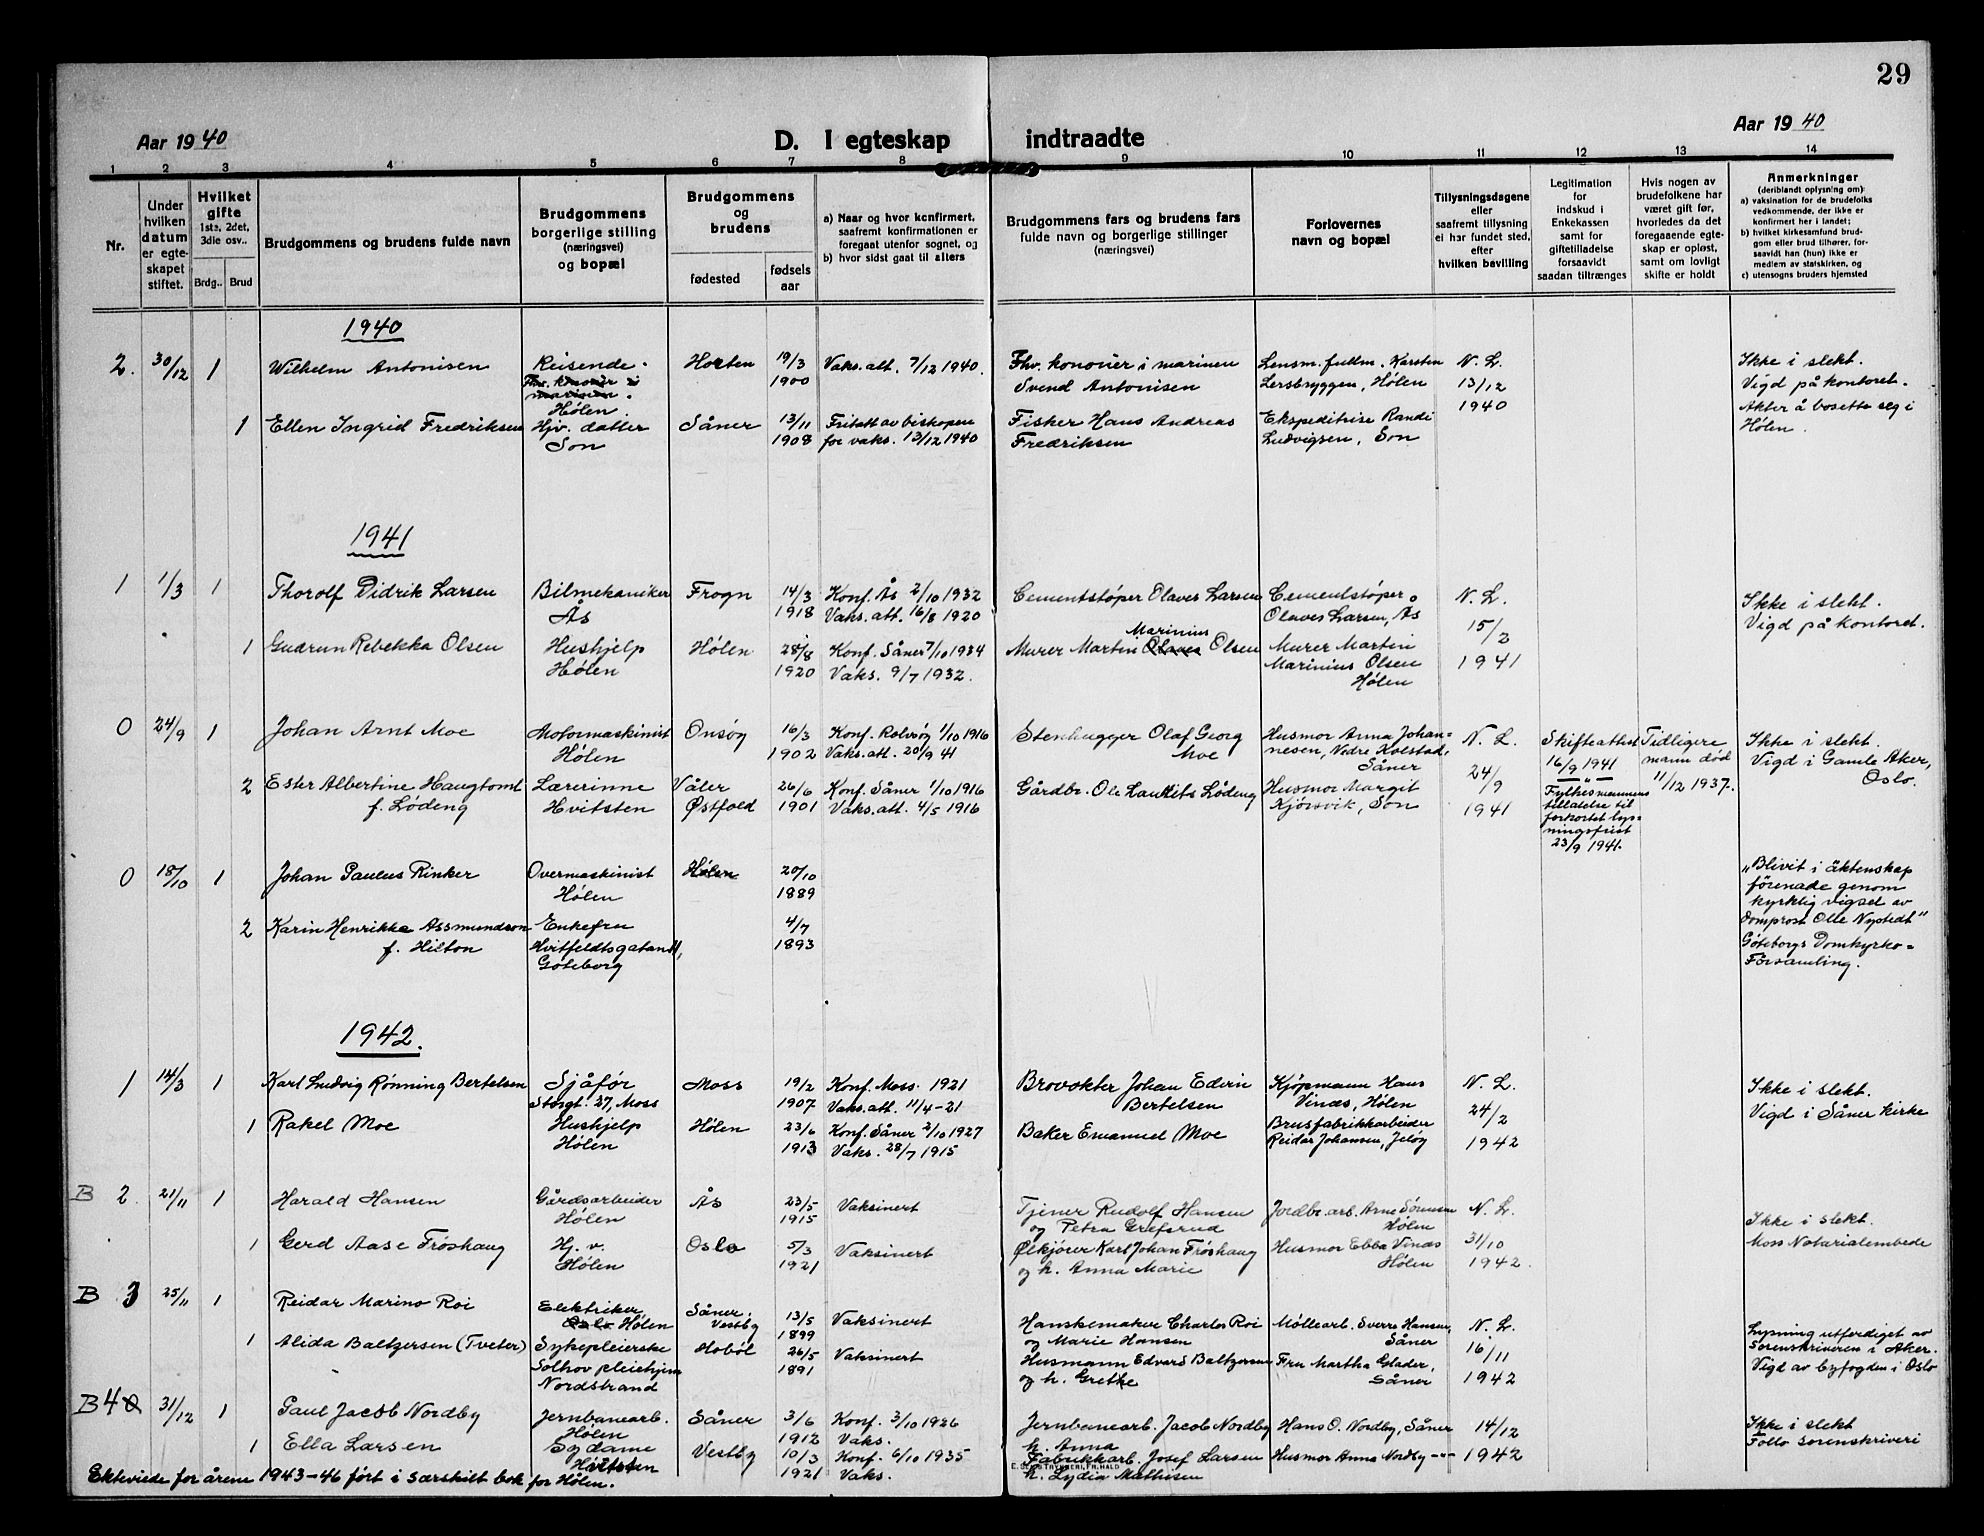 29
Aar 1940
D. I egteskap indtraadte
Aar 1940
1 2 3 4 5 6 7 8 9 10 11 12 13 14
Nr.
Under hvilken datum er egteskapet stiftet.
Hvilket gifte 1ste, 2det, 3die osv..
Brdg.. Brud
Brudgommens og brudens fulde navn
Brudgommens borgerlige stilling (næringsvei) og bopæl
Brudgommens og brudens
fødested
fødsels aar
a) Naar og hvor konfirmert, saafremt konfirmationen er foregaat utenfor sognet, og
b) hvor sidst gaat til alters
Brudgommens fars og brudens fars fulde navn og borgerlige stillinger (næringsvei)
Forlovernes navn og bopæl
Tillysningsdagene eller saafremt tillysning ei har fundet sted, efter hvilken bevilling
Legitimation for indskud i Enkekassen samt for giftetilladelse forsaavidt saadan tiltrænges
Hvis nogen av brudefolkene har været gift før, hvorledes da det foregaaende egteskap er opløst, samt om lovligt skifte er holdt
Anmerkninger (deriblandt oplysning om):
a) vaksination for de brudefolks vedkommende, der ikke er konfirmert her i landet;
b) hvilket kirkesamfund brudgom eller brud tilhører, forsaavidt han (hun) ikke er medlem av statskirken, og
c) utensogns bruders hjemsted
1940
2. 30/12 1 Wilhelm Antonisen Reisende. Fhv. kanonér i marinen. Hølen. Horten 19/3 1900 Vaks. att. 7/12 1940. Fhv. kononér i marinen Svend Antonisen Lensm. fullm. Karsten Lersbryggen, Hølen N. L. 13/12 1940 Ikke i slekt. Vigd på kontoret. Akter å bosette seg i Hølen.
1 Ellen Ingrid Fredriksen Hjv. datter Son Såner 13/11 1908 Fritatt av biskopen for vaks. 13/12 1940 Fisker Hans Andreas Fredriksen Ekspeditrise Randi Ludvigsen, Son
1941
1 1/3 1 Thorolf Didrik Larsen Bilmekaniker Ås Frogn 14/3 1918 Konf. Ås 2/10 1932 Vaks. att. 16/8 1920 Cementstøper Olaves Larsen Cementstøper Olaves Larsen, Ås N. L. 15/2 1941 Ikke i slekt. Vigd på kontoret.
1 Gudrun Rebekka Olsen Hushjelp Hølen Hølen 28/8 1920 Konf. Såner 7/10 1934 Vaks. 9/7 1932. Murer Martin Olaves Marinius Olsen Murer Martin Marinius Olsen Hølen
0 24/9 1 Johan Arnt Moe Motormaskinist Hølen Onsøy 16/3 1902 Konf. Rolvsøy 1/10 1916 Vaks. att. 20/9 41 Stenhugger Olaf Georg Moe Husmor Anna Johannesen, Nedre Kolstad, Såner N. L. 24/9 1941 Skifteattest 16/9 1941 — " — Fylkesmannens tilladelse til forkortet lysningsfrist 23/9 1941. Tidligere mann død 11/12 1937. Ikke i slekt. Vigd i Gamle Aker, Oslo.
2 Ester Albertine Haugtomt f. Lødeng Lærerinne Hvitsten Våler Østfold 26/6 1901 Konf. Såner 1/10 1916 Vaks. att. 4/5 1916 Gårdbr. Ole Lauritz Lødeng Husmor Margit Kjørsvik, Son
0 18/10 1 Johan Paulus Rinker Overmaskinist Hølen Hølen 20/10 1889 "Blivit i äktenskap förenade genom kyrklig vigsel av Domprost Olle Nystedt" Göteborgs Domkyrko-Församling.
2 Karin Henrikke Assmundson f. Hilton Enkefru Hvitfeldtsgatan 11, Göteborg 4/7 1893
1942.
1 14/3 1 Karl Ludvig Rønning Bertelsen Sjåfør Storgt. 27, Moss Moss 19/2 1907 Konf. Moss. 1921 Vaks. att. 11/4-21 Brovokter Johan Edvin Bertelsen Kjøpmann Hans Vinæs, Hølen N. L. 24/2 1942 Ikke i slekt. Vigd i Såner kirke
1 Rakel Moe Hushjelp Hølen Hølen 23/6 1913 Konf. Såner 2/10 1927 Vaks. 28/7 1915 Baker Emanuel Moe Brusfabrikkarbeider Reidar Johansen, Jeløy
B 2 21/11 1 Harald Hansen Gårdsarbeider Hølen Ås 23/5 1915 Vaksinert Tjener Rudolf Hansen og Petra Grefsrud Jordbr. arb. Arne Sørensen Hølen N. L. 31/10 1942. Ikke i slekt. Moss Notarialembede
1 Gerd Aase Frøshaug Hj. v. Hølen Oslo 5/3 1921 Vaksinert Ølkjører Karl Johan Frøshaug og h. Anna Marie Husmor Ebba Vinæs Hølen
B 3 25/11 1 Reidar Marino Roi Elektriker, Oslo Hølen Såner, Vestby 13/5 1899 Vaksinert Hanskemaker Charles Roi og Marie Hansen Møllearb. Sverre Hansen, Såner N. L. 16/11 1942 Lysning utferdiget av Sorenskriveren i Aker. Vigd av byfogden i Oslo
1 Alida Baltzersen (Tveter) Sykepleierske Solhov pleiehjem Nordstrand Hobøl 26/5 1891 Vaksinert Husmann Edvard Baltzersen og h. Grethe Fru Martha Glader, Såner
B 4 0 31/12 1 Paul Jacob Nordby Jernbanearb. Hølen Såner 3/6 1912 Konf. 3/10 1926 Vaks. Jernbanearb. Jacob Nordby h. Anna Hans O. Nordby, Såner 14/12 1942 Ikke i slekt Follo sorenskriveri
1 Ella Larsen Sydame Hvitsten Vestby 10/3 1921 Konf. 6/10 1935 Vaks. Fabrikkarb. Josef Larsen h. Lydia Mathisen Husmor Anna Nordby — " —
Ektevigde for årene 1943-46 ført i særskilt bok for Hølen.